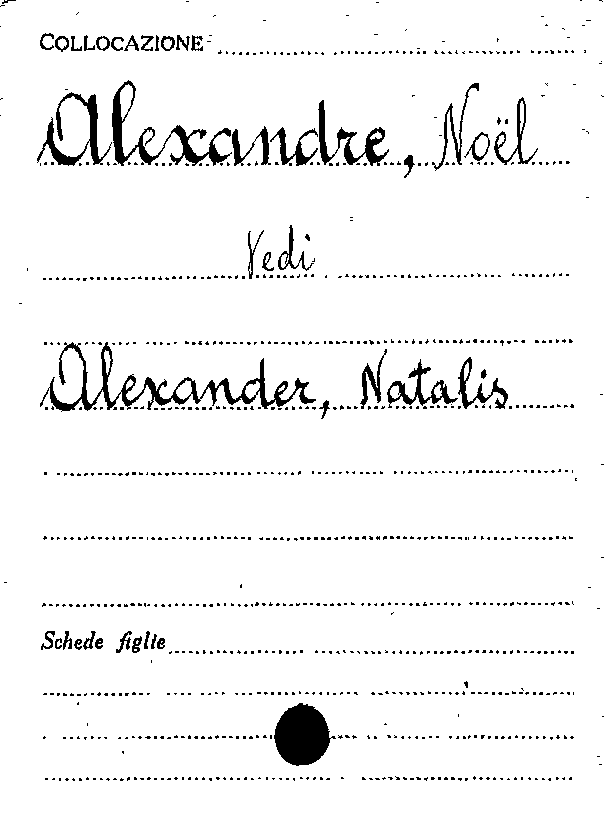 COLLOCAZIONE
Alexandre, Noël
Vedi
Alexander, Natalis
Schede figlie